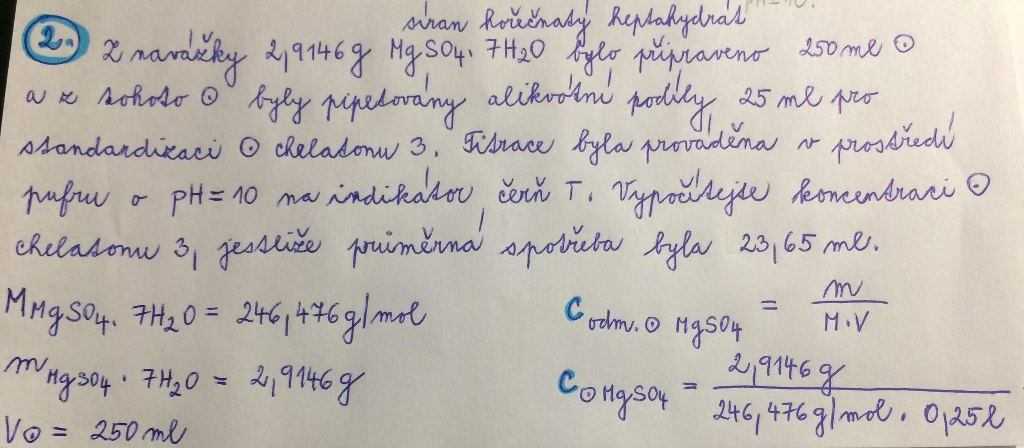 pH=10.
síran hořečnatý heptahydrát
2. Z navážky 2,9146g MgSO4. 7H2O bylo připraveno 250ml ⊙
a z tohoto ⊙ byly pipetovány alikvótní podíly 25 ml pro
standardizaci ⊙ chelatonu 3. Titrace byla prováděna v prostředí
pufru o pH=10 na indikátor čerň T. Vypočítejte koncentraci ⊙
chelatonu 3, jestliže průměrná spotřeba byla 23,65 ml.
MMgSO4. 7H2O = 246,476g/mol
c odm. ⊙ MgSO4 = m / M·V
mMgSO4 · 7H2O = 2,9146g
c⊙ MgSO4 = 2,9146g / 246,476g/mol · 0,25l
V⊙ = 250ml